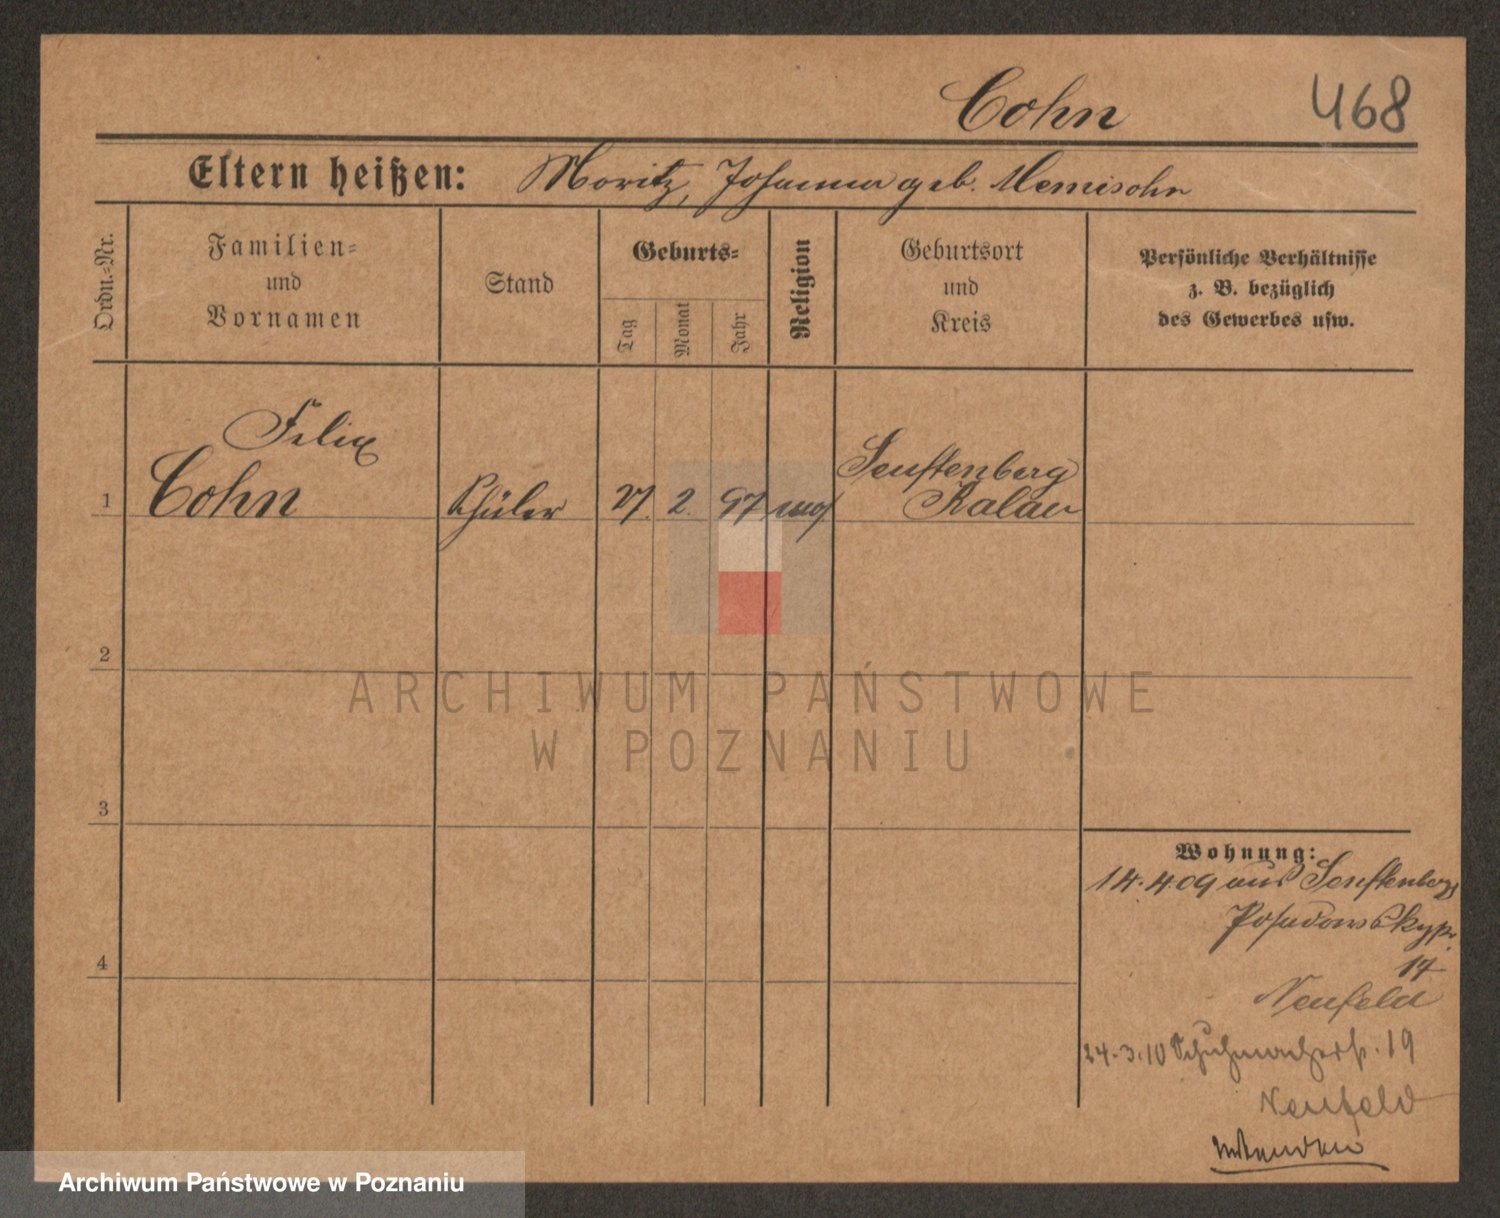 Cohn 468
Eltern heißen: Moritz, Johanna geb. Nemisohn
Ordn.-Nr.
Familien-
und
Vornamen
Stand
Geburts-
Tag
Monat
Jahr
Religion
Geburtsort
und
Kreis
Persönliche Verhältnisse
z. B. bezüglich
des Gewerbes usw.
Felix
1 Cohn Schüler 27. 2. 97
Senftenberg
Kalau
2
3
4
Wohnung:
14.4.09 aus Senftenberg
Posadowskystr.
17
Neufeld
24.3.10 Schuhmacherstr. 19
Neufeld
ARCHIWUM PAŃSTWOWE
W POZNANIU
Archiwum Państwowe w Poznaniu